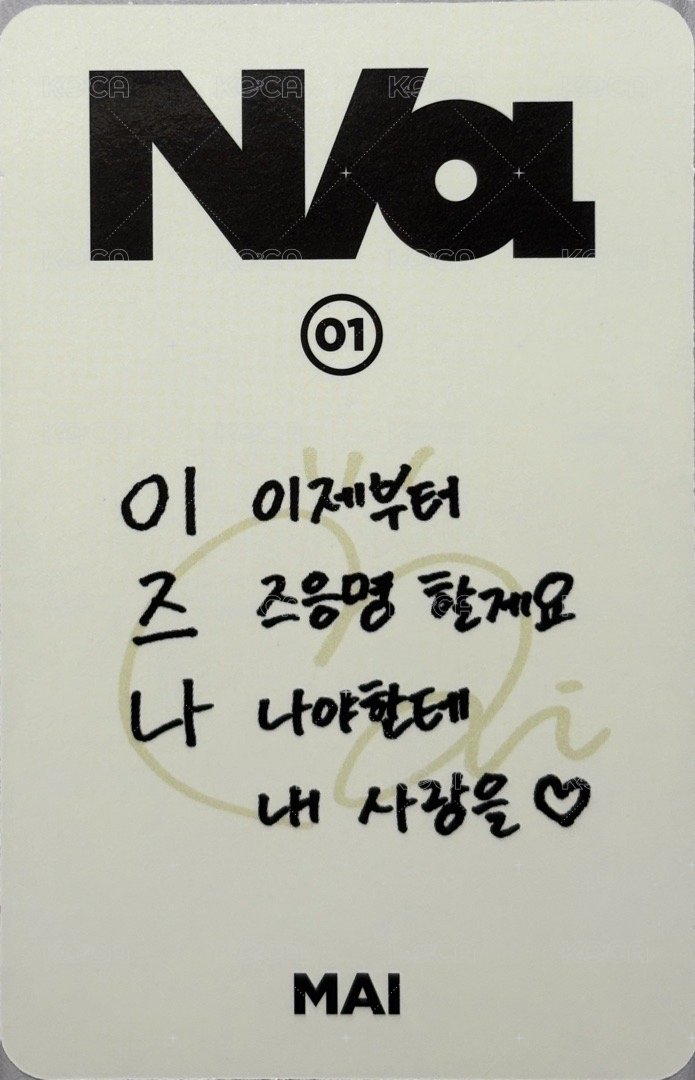 N/a
01
이 이제부터
즈 즈응명 할게요
나 나야한테
내 사랑을 ♡
Mai
MAI
KOCA